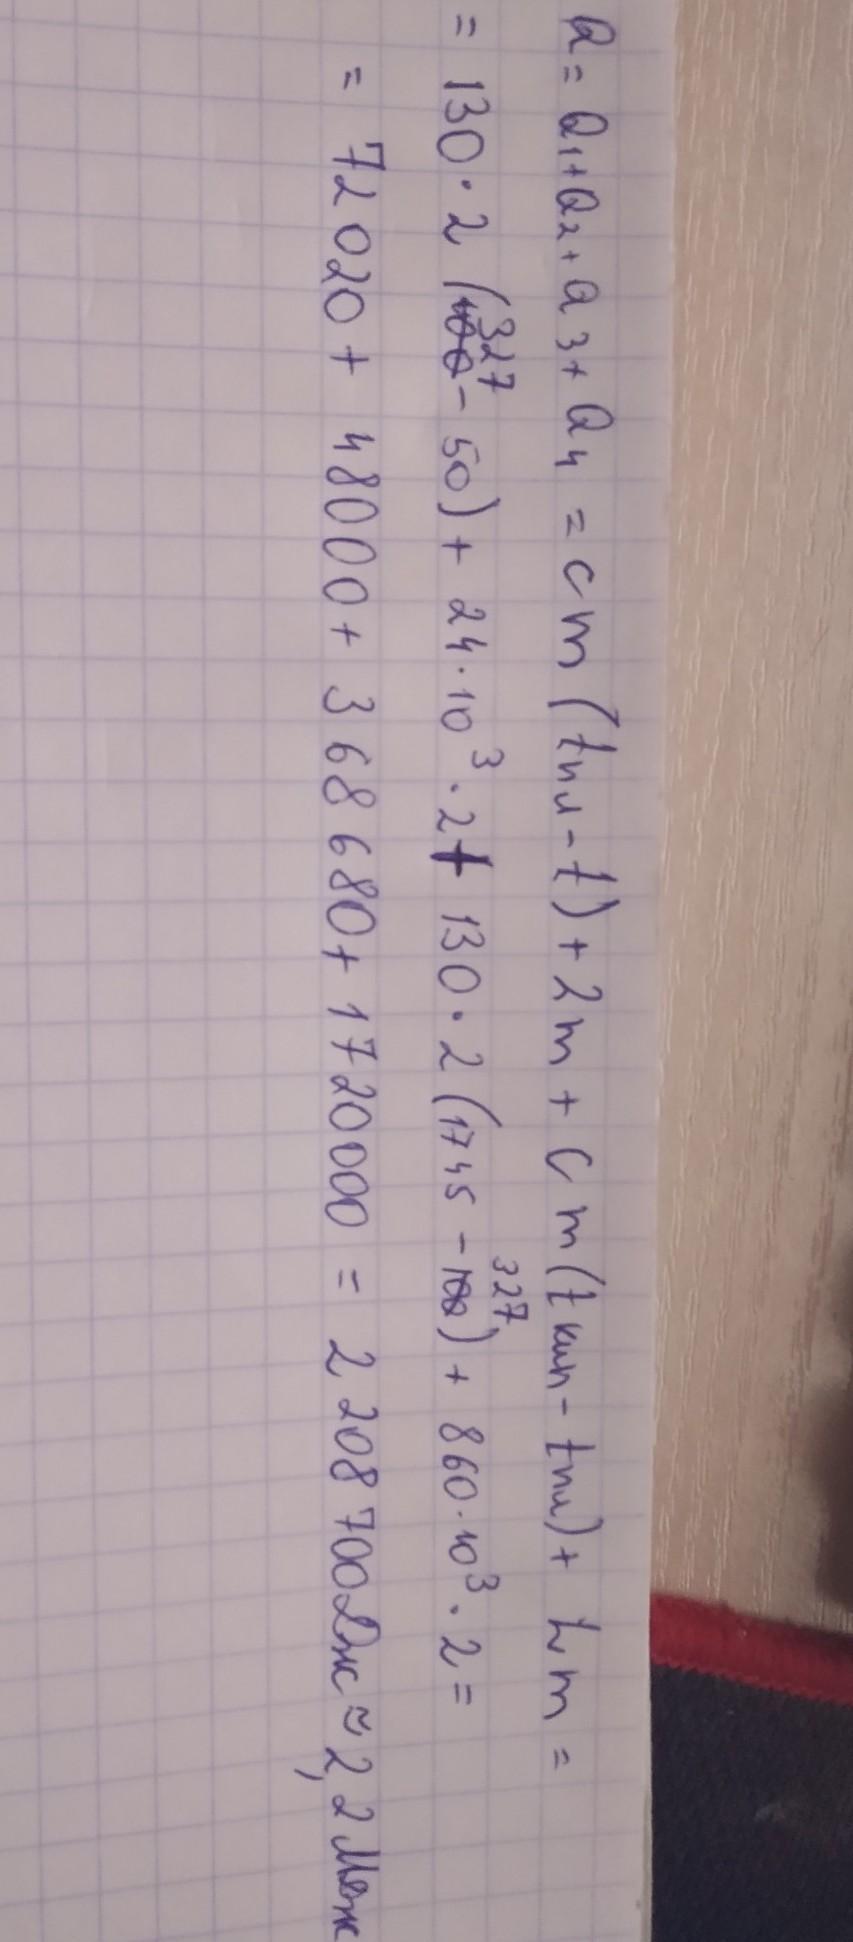 Q = Q₁ + Q₂ + Q₃ + Q₄ = cm(tпл - t) + λm + cm(tкип - tпл) + Lm =
= 130 · 2 (327 - 50) + 24 · 10³ · 2 + 130 · 2 (1745 - 327) + 860 · 10³ · 2 =
= 72 020 + 48000 + 368 680 + 1720000 = 2 208 700 Дж ≈ 2,2 МДж